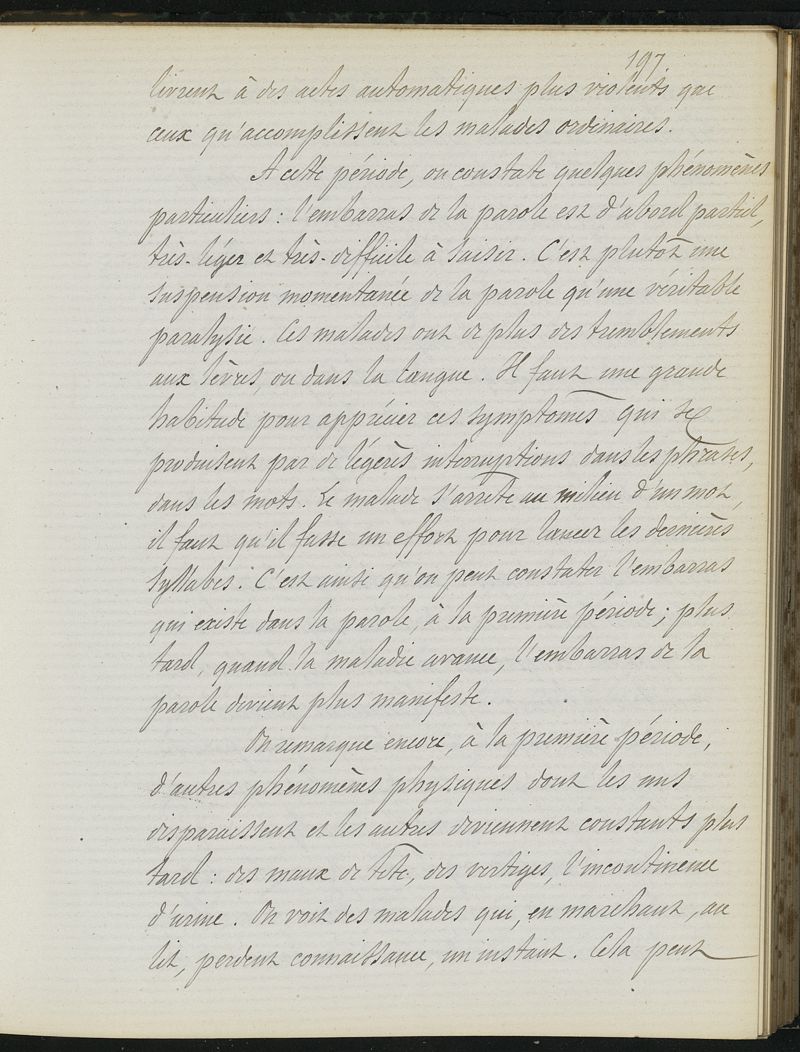 197
livrent à des actes automatiques plus violents que
ceux qu'accomplissent les malades ordinaires.
A cette période, on constate quelques phénomènes
particuliers : l'embarras de la parole est d'abord partiel,
très-léger et très-difficile à saisir. C'est plutôt une
suspension momentanée de la parole qu'une véritable
paralysie. Ces malades ont de plus des tremblements
aux lèvres, ou dans la langue. Il faut une grande
habitude pour apprécier ces symptomes qui se
produisent par de légères interruptions dans les phrases,
dans les mots. Le malade s'arrête au milieu d'un mot,
il faut qu'il fasse un effort pour lancer les dernières
syllabes. C'est ainsi qu'on peut constater l'embarras
qui existe dans la parole, à la première période ; plus
tard, quand la maladie avance, l'embarras de la
parole devient plus manifeste.
On remarque encore, à la première période,
d'autres phénomènes physiques dont les uns
disparaissent et les autres deviennent constants plus
tard : des maux de tête, des vertiges, l'incontinence
d'urine. On voit des malades qui, en marchant, au
lit, perdent connaissance, un instant. Cela peut